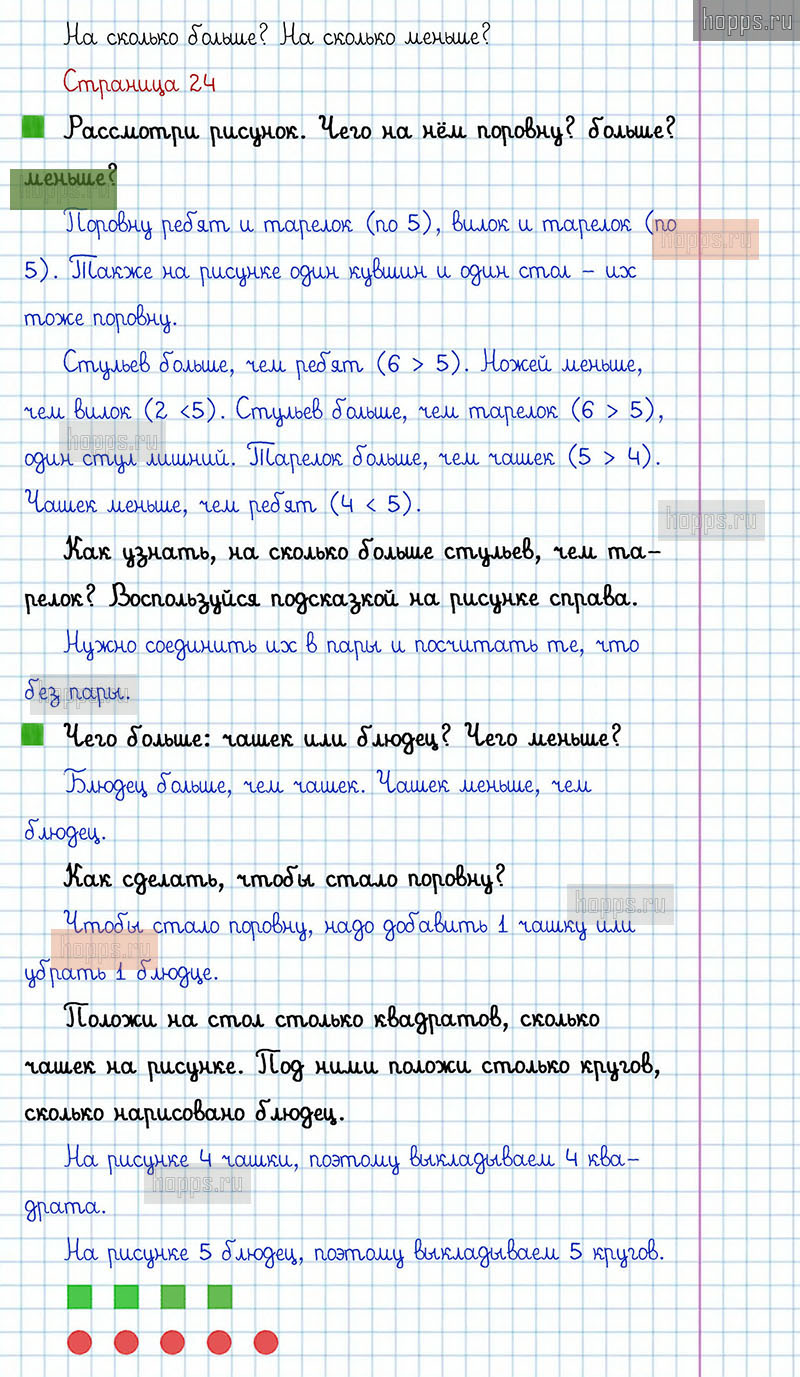 hopps.ru
На сколько больше? На сколько меньше?
Страница 24
Рассмотри рисунок. Чего на нём поровну? больше?
меньше?
hopps.ru
Поровну ребят и тарелок (по 5), вилок и тарелок (по
hopps.ru
5). Также на рисунке один кувшин и один стол – их
тоже поровну.
Стульев больше, чем ребят (6 > 5). Ножей меньше,
чем вилок (2 <5). Стульев больше, чем тарелок (6 > 5),
hopps.ru
один стул лишний. Тарелок больше, чем чашек (5 > 4).
Чашек меньше, чем ребят (4 < 5).
hopps.ru
Как узнать, на сколько больше стульев, чем та-
релок? Воспользуйся подсказкой на рисунке справа.
Нужно соединить их в пары и посчитать те, что
без пары.
hopps.ru
Чего больше: чашек или блюдец? Чего меньше?
Блюдец больше, чем чашек. Чашек меньше, чем
блюдец.
Как сделать, чтобы стало поровну?
hopps.ru
Чтобы стало поровну, надо добавить 1 чашку или
hopps.ru
убрать 1 блюдце.
Положи на стол столько квадратов, сколько
чашек на рисунке. Под ними положи столько кругов,
сколько нарисовано блюдец.
На рисунке 4 чашки, поэтому выкладываем 4 ква-
hopps.ru
драта.
На рисунке 5 блюдец, поэтому выкладываем 5 кругов.